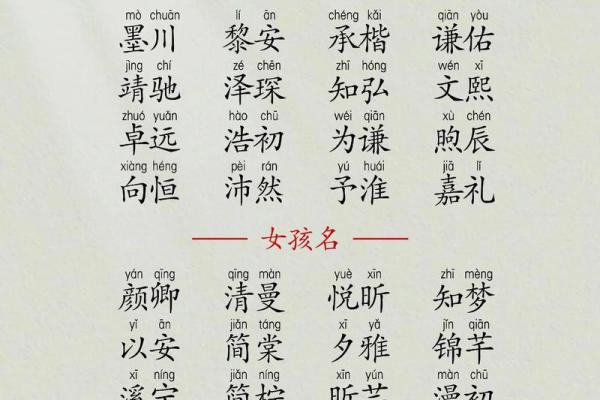 mò chuān lí ān chéng kǎi qiān yòu
墨川 黎安 承楷 谦佑
jìng chí zé chēn zhī hóng wén xī
靖驰 泽琛 知弘 文熙
zhuó yuǎn hào chū wéi qiān xù chén
卓远 浩初 为谦 煦辰
xiàng héng pèi rán yú huái jiā lǐ
向恒 沛然 予淮 嘉礼
女孩名
yán qīng qīng màn yuè xīn zhī mèng
颜卿 清曼 悦昕 知梦
yǐ ān jiǎn táng xī yǎ jǐn qiān
以安 简棠 夕雅 锦芊
xī níng jiǎn níng màn chū
溪宁 简柠 昕芸 漫初